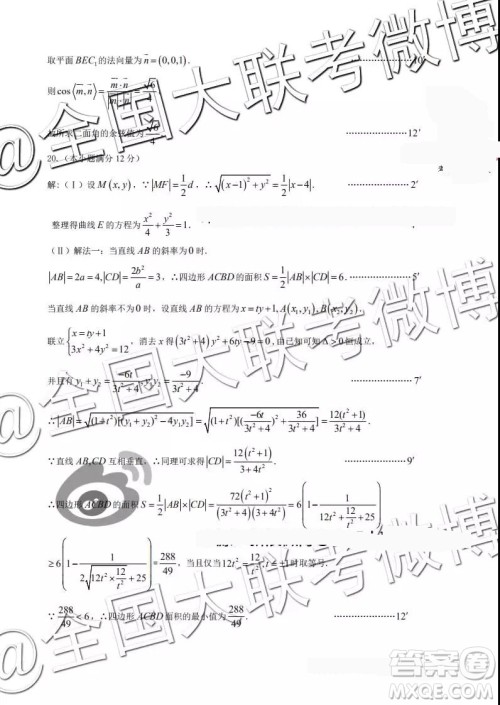 取平面 BEC₁ 的法向量为 n = (0,0,1).
则 cos⟨m, n⟩ = m·n / |m|·|n| = √6/4
20.（本小题满分12分）
解:（Ⅰ）设 M(x, y), ∵|MF| = 1/2 d, ∴√((x−1)² + y²) = 1/2|x−4|. ………………… 2′
整理得曲线 E 的方程为 x²/4 + y²/3 = 1.
（Ⅱ）解法一：当直线 AB 的斜率为 0 时.
|AB| = 2a = 4, |CD| = 2b²/a = 3, ∴四边形 ACBD 的面积 S = 1/2|AB|×|CD| = 6. ………………… 5′
当直线 AB 的斜率不为 0 时，设直线 AB 的方程为 x = ty+1, A(x₁, y₁), B(x₂, y₂).
联立 { x = ty+1 3x² + 4y² = 12 , 消去 x 得 (3t² + 4)y² + 6ty − 9 = 0, 由已知可知 Δ > 0 恒成立,
并且有 y₁ + y₂ = −6t/(3t² + 4), y₁y₂ = −9/(3t² + 4) ………………… 7′
∵|AB| = √((1+t²)[(y₁ + y₂)² − 4y₁y₂]) = √((1+t²)[(−6t/(3t² + 4))² + 36/(3t² + 4)]) = 12(t² + 1)/(3t² + 4)
∵直线 AB, CD 互相垂直, ∴同理可求得|CD| = 12(t² + 1)/(3 + 4t²) ………………… 9′
∴四边形 ACBD 的面积 S = 1/2|AB|×|CD| = 72(t² + 1)²/((3t² + 4)(3 + 4t²)) = 6(1 − 1/(12t² + 12/t² + 25))
≥ 6(1 − 1/(2√(12t² × 12/t²) + 25)) = 288/49, 当且仅当 12t² = 12/t², t = ±1 时取等号.
∵288/49 < 6, ∴四边形 ACBD 面积的最小值为 288/49. ………………… 12′
@全国大联考微博
@全国大联考微博
@全国大联考微博
答案圈
MXQE.COM